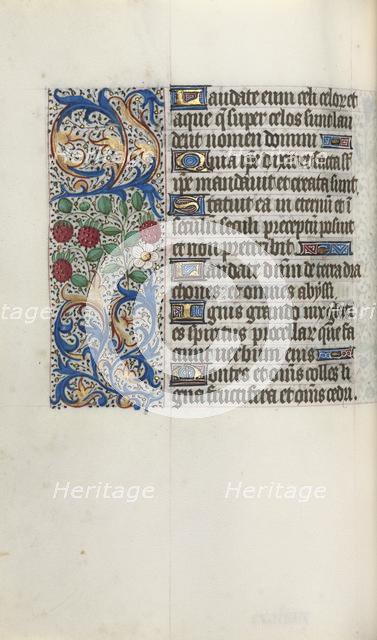 Laudate eum celi celor et
aque q super celos sunt lau
dent nomen domini
Quia ipe dixit et facta ss
ipe mandavit et creata sunt
Statuit ea in eternu et i
seculu seculi preceptu posuit
et non preteribit
Laudate dnm de terra dra
chones et omnes abyssi
Ignis grando nix glaci
es spiritus procellar que fa
ciunt verbum eius
Montes et oms colles li
gna fructifera et oms cedri.
heritage-images
heritage-images
Heritage Heritage